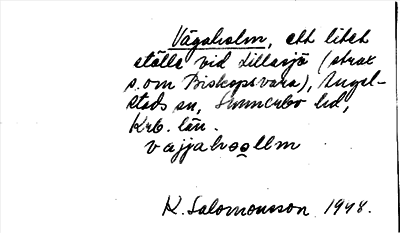 Vägaholm, ett litet
ställe vid Lillasjö (strax
s.om Biskopsvara), Angel-
stads sn, Sunnerbo hd,
Krb. län.
vajjahoollm
K. Salomonsson 1948.